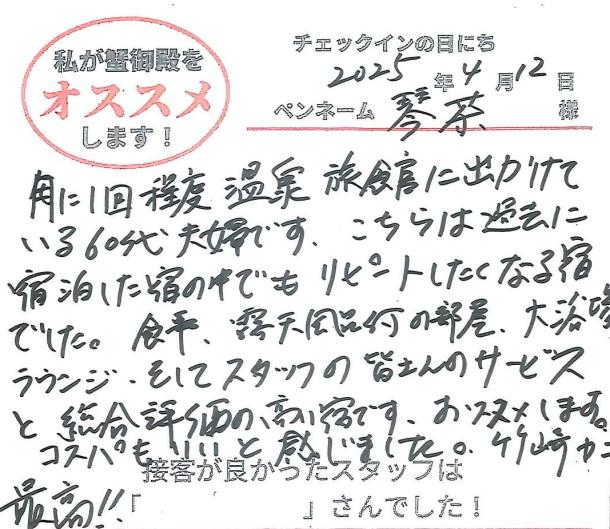 私が蟹御殿を
オススメ
します！
チェックインの日にち
2025年4月12日
ペンネーム 琴葉 様
月に1回程度温泉旅館に出かけて
いる60代夫婦です。こちらは過去に
宿泊した宿の中でもリピートしたくなる宿
でした。食事、露天風呂付の部屋、大浴場
ラウンジ、そしてスタッフの皆さんのサービス
と総合評価の高い宿です。おススメします。
コスパもいいと感じました。竹崎カニ
最高!!
接客が良かったスタッフは
「 」さんでした！